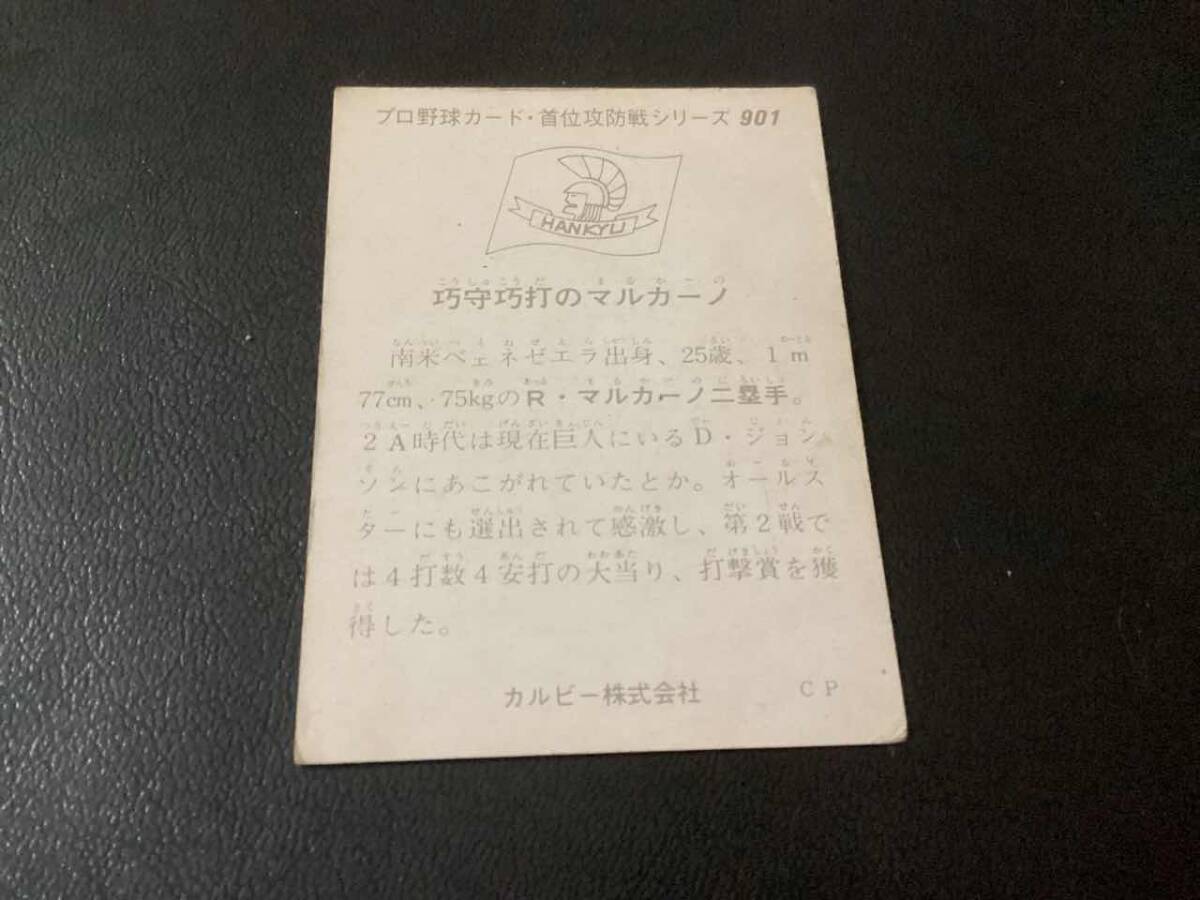 プロ野球カード・首位攻防戦シリーズ 901
HANKYU
巧守巧打のマルカーノ
南米ベェネゼエラ出身、25歳、1m
77cm、75kgのR・マルカーノ二塁手。
2A時代は現在巨人にいるD・ジョン
ソンにあこがれていたとか。オールス
ターにも選出されて感激し、第2戦で
は4打数4安打の大当り、打撃賞を獲
得した。
カルビー株式会社 CP